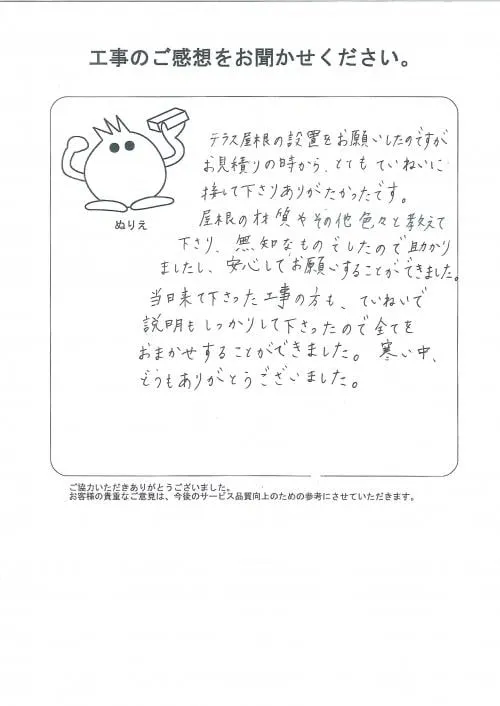 工事のご感想をお聞かせください。
テラス屋根の設置をお願いしたのですが
お見積りの時から、とても ていねいに
接して下さりありがたかったです。
ぬりえ
屋根の材質やその他色々と教えて
下さり、無知なものでしたので助かり
ましたし、安心してお願いすることができました。
当日来て下さった工事の方も、ていねいで
説明もしっかりして下さったので全てを
おまかせすることができました。 寒い中、
どうもありがとうございました。
ご協力いただきありがとうございました。
お客様の貴重なご意見は、今後のサービス品質向上のための参考にさせていただきます。